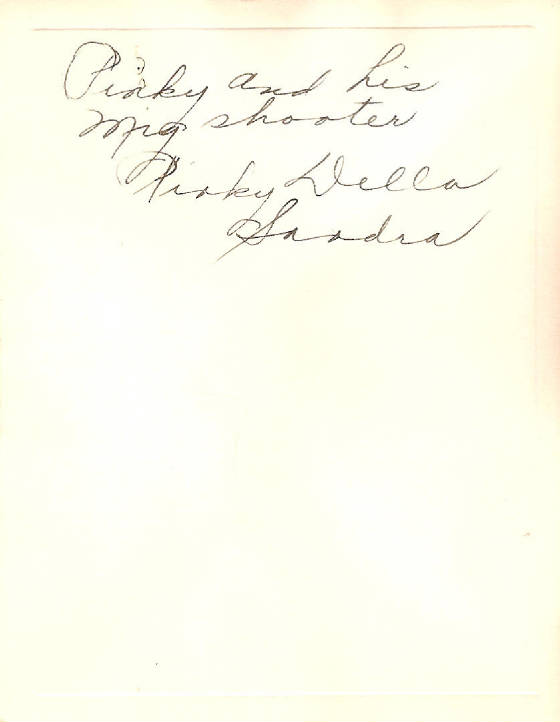 Pinky and his
Mig shooter
Pinky Della
Sandra